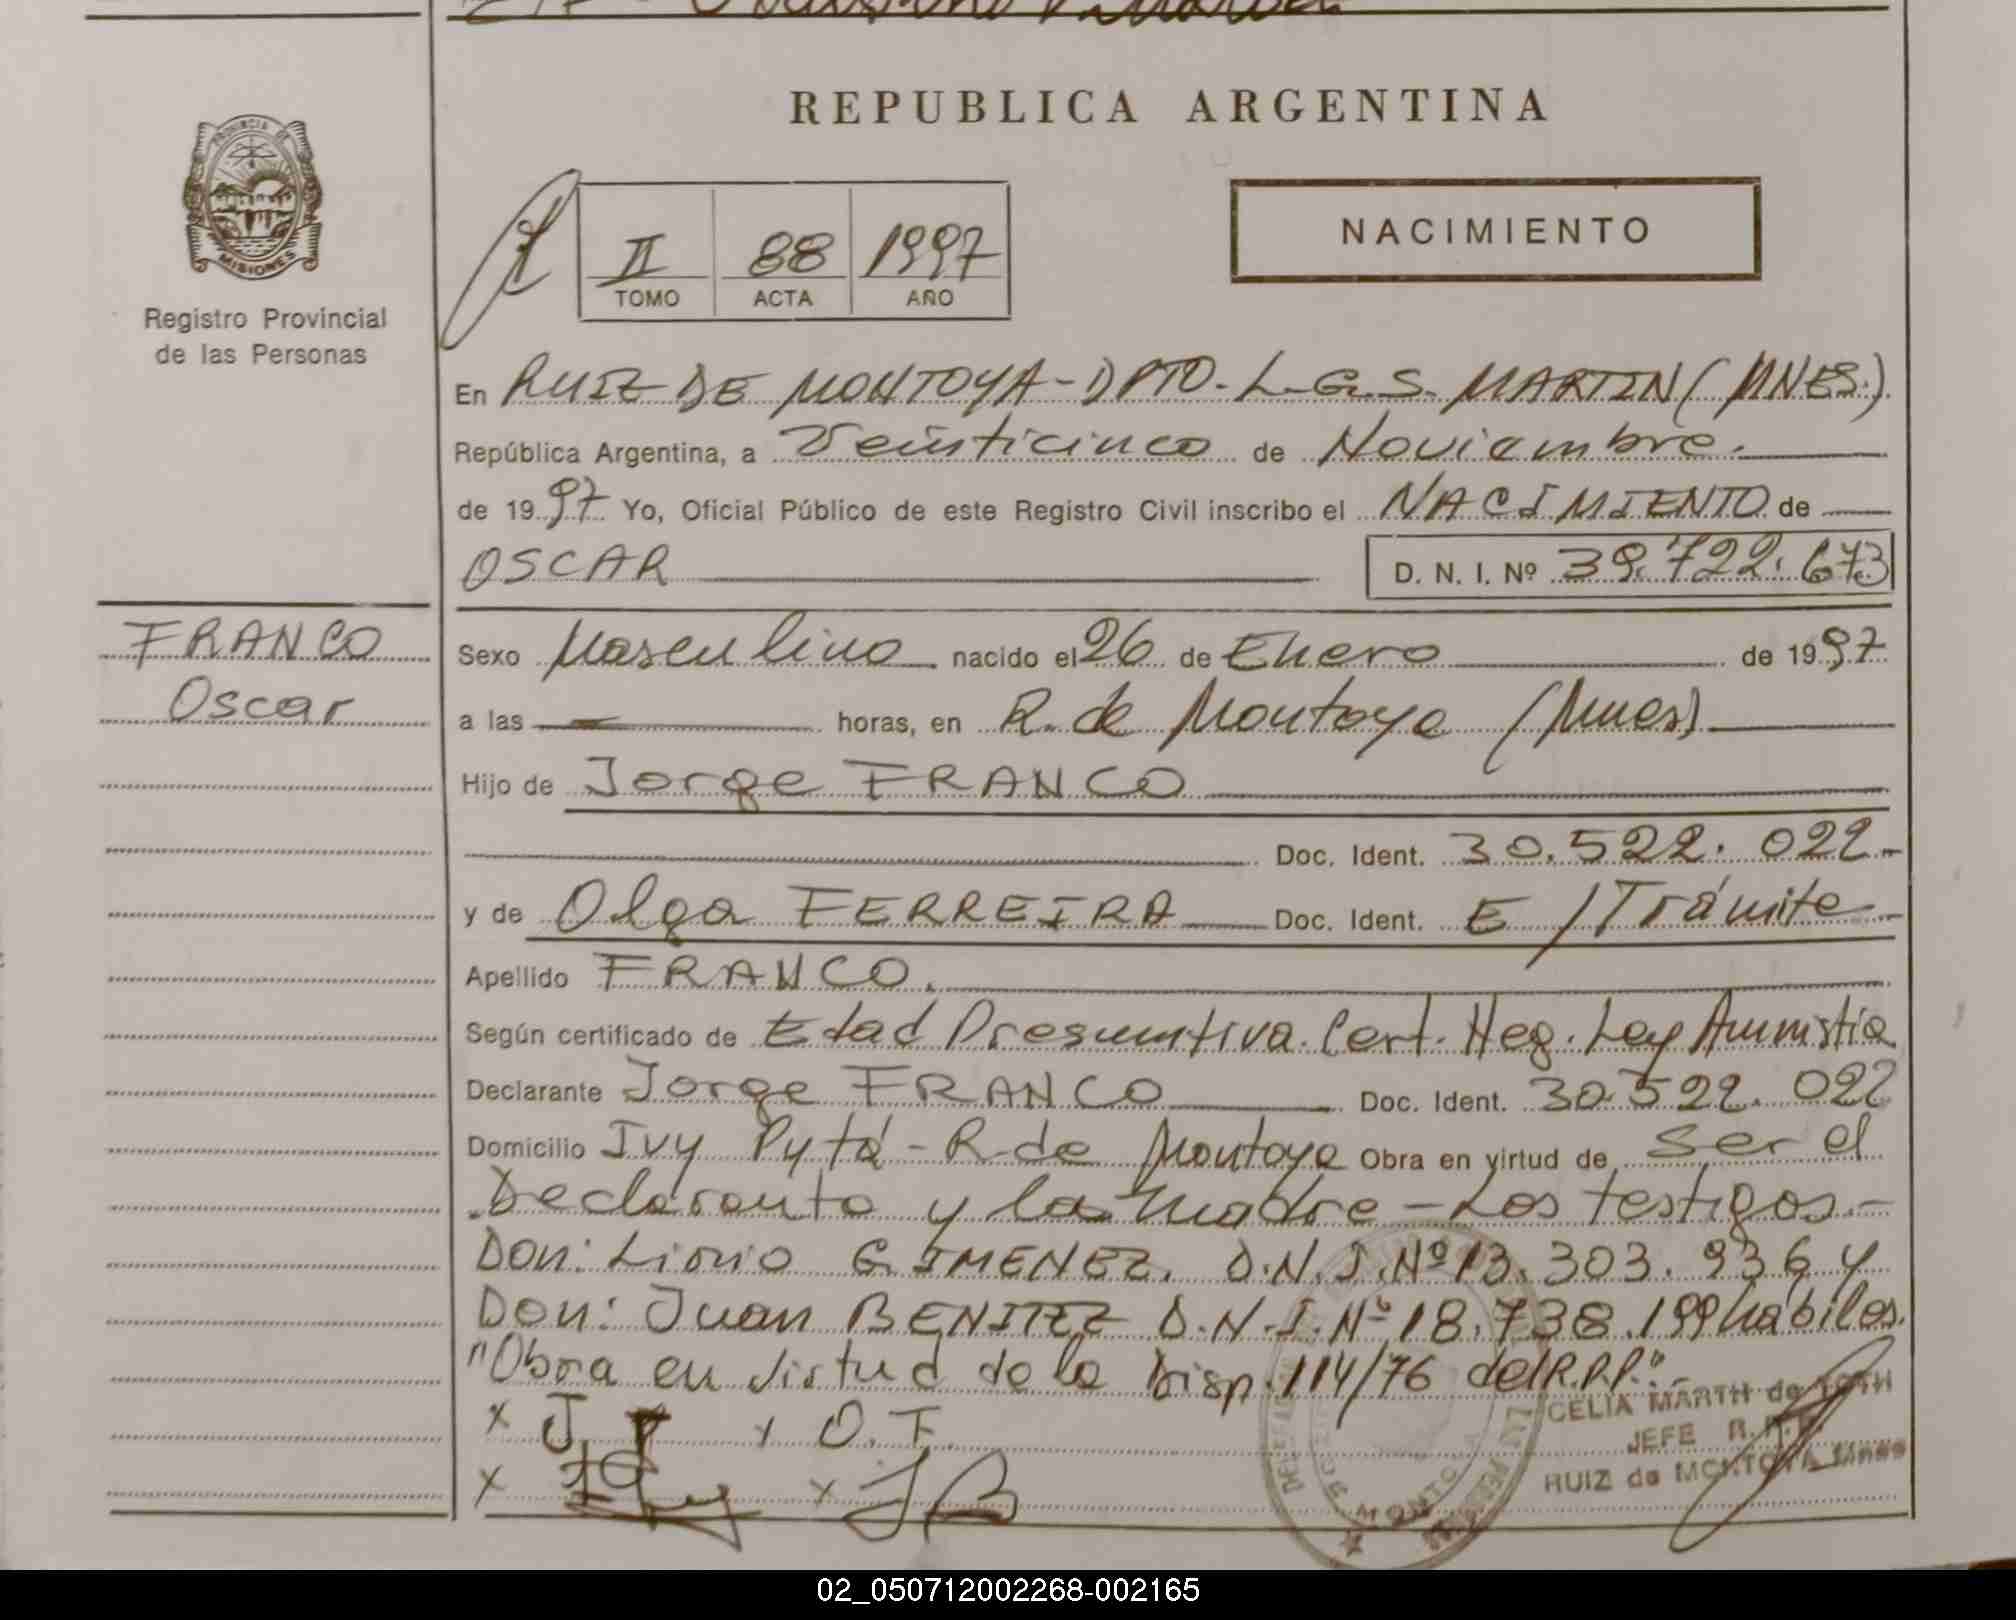 REPUBLICA ARGENTINA
PROVINCIA DE
MISIONES
Registro Provincial
de las Personas
II 88 1997
TOMO ACTA AÑO
NACIMIENTO
En RUIZ DE MONTOYA-DPTO. L.G.S. MARTIN (MNES.)
República Argentina, a Veinticinco de Noviembre.
de 1997 Yo, Oficial Público de este Registro Civil inscribo el NACIMIENTO de
OSCAR D. N. I. Nº 39.722.673
FRANCO
Oscar
Sexo Masculino nacido el 26 de Enero de 1997
a las horas, en R. de Montoya (Mnes)
Hijo de Jorge FRANCO
Doc. Ident. 30.522.022-
y de Olga FERREIRA Doc. Ident. E/Trámite
Apellido FRANCO.
Según certificado de Edad Presuntiva. Cert. Neg. Ley Amnistia
Declarante Jorge FRANCO Doc. Ident. 30.522.022
Domicilio Ivy Pytá-R. de Montoya Obra en virtud de ser el
Declarante y la madre - Los testigos.-
Don: Lirio GIMENEZ. D.N.I. Nº 13.303.936 y
Don: Juan BENITEZ D.N.I. Nº 18.738.199 hábiles.
"Obra en virtud de la Disp. 114/76 del R.P.P."
x J. F x O.F.
x x JB
CELIA MARTH de TOTH
JEFE R.P.P.
RUIZ de MONTOYA Mnes
02_050712002268-002165